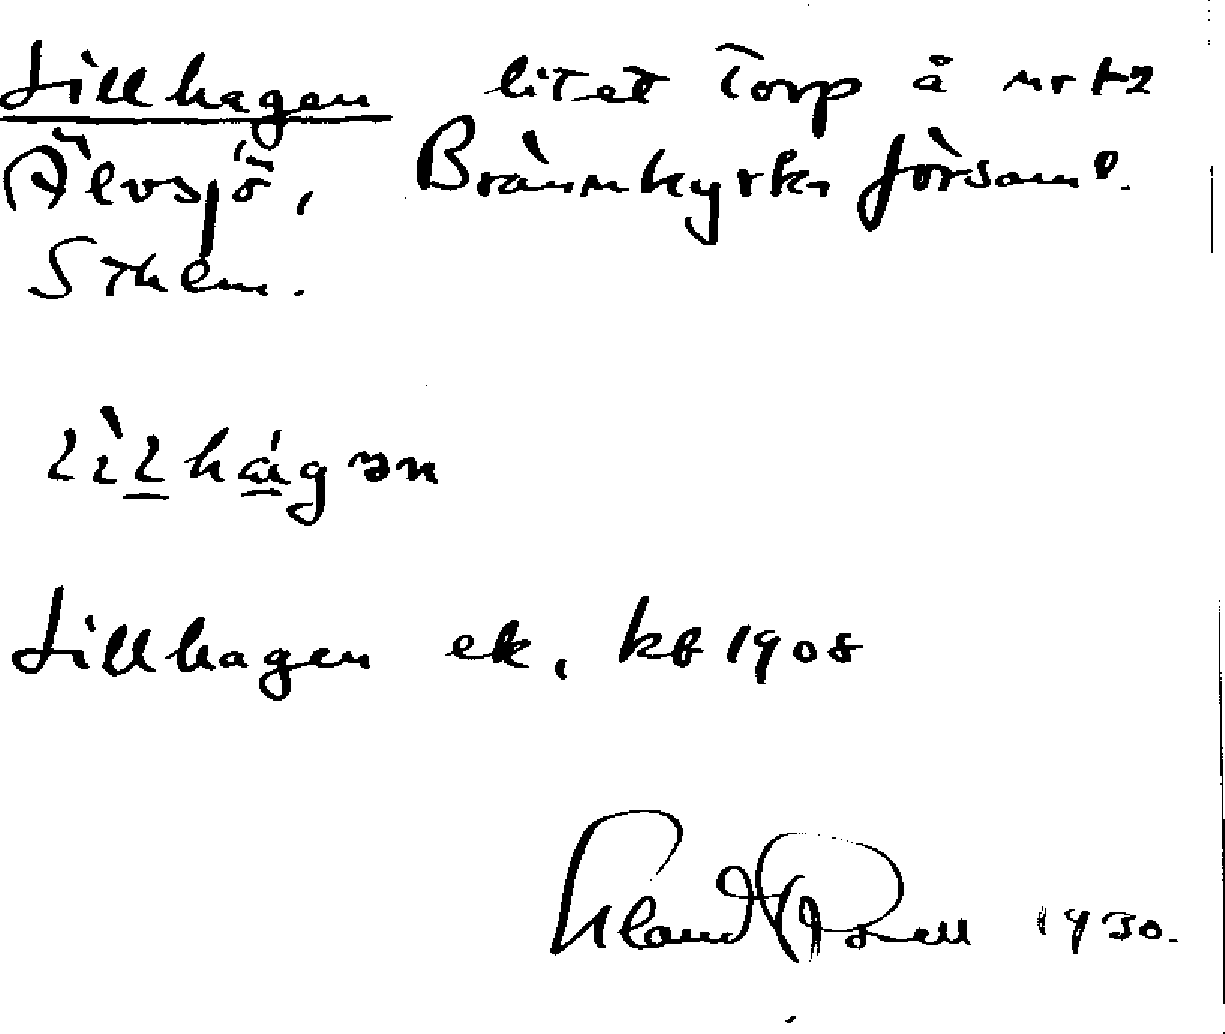 Lillhagen litet torp å nr 12
Älvsjö, Brännkyrka församl.
Sthlm.
lìlhágən
Lillhagen ek. kb 1908
1930.